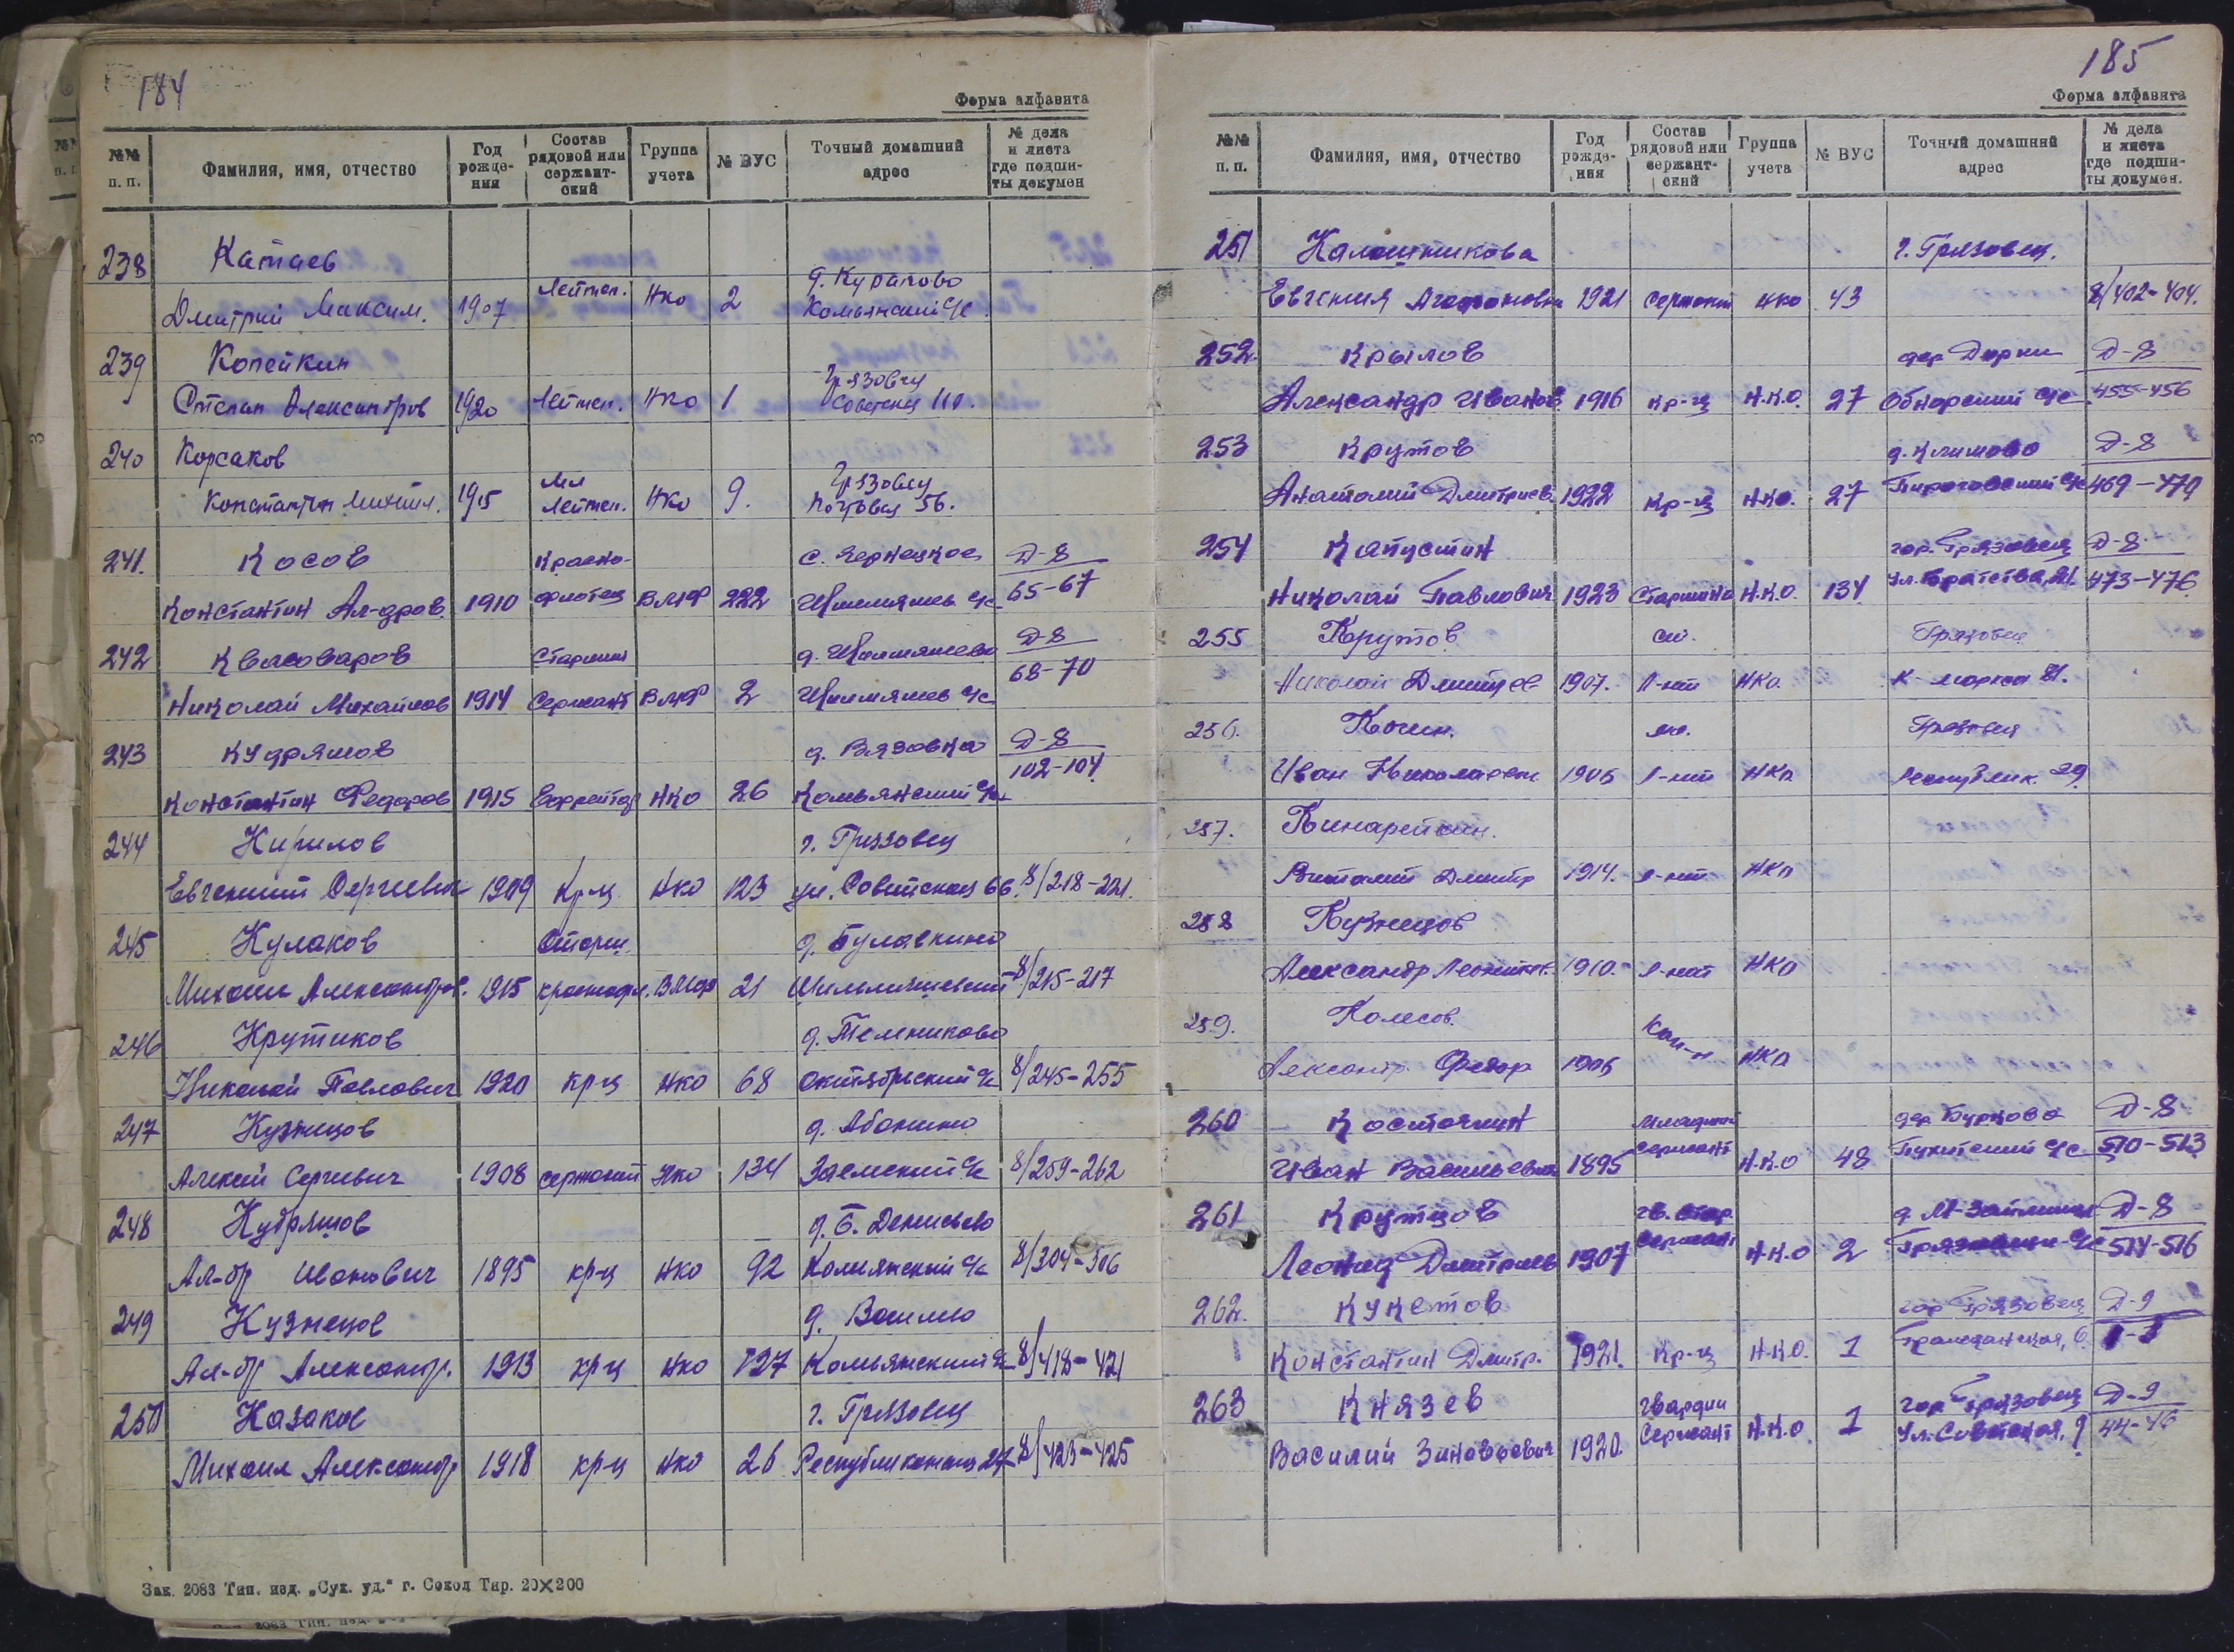 184
Форма алфавита
№№ п. п. Фамилия, имя, отчество Год рожде-ния Состав рядовой или сержант-ский Группа учета № ВУС Точный домашний адрес № дела и листа где подши-ты докумен
238 Катаев д. Курапово
Дмитрий Максим. 1907 Лейтен. НКО 2 Комьянский с/с
239 Копейкин Грязовец
Степан Александров 1920 Лейтен. НКО 1 Советская 110.
240 Корсаков Мл Грязовец
Константин Михайл. 1915 Лейтен. НКО 9. Почтовая 56.
241. Косов Красно- с. Чернецкое Д-8
Константин Ал-дров. 1910 флотец ВМФ 222 с/с 65-67
242 Квасоваров Старший Д-8
Николай Михайлов 1914 Сержант ВМФ 2 с/с 68-70
243 Кудряшов д. Вязовка Д-8
Константин Федоров 1915 Ефрейтор НКО 26 Комьянский с/с 102-104
244 Кирилов г. Грязовец
Евгений Сергеевич 1909 Кр-ц НКО 123 ул. Советская 66. 8/218-221.
245 Кулаков Старш. д. Булавкино
Михаил Александров. 1915 краснофл. ВМФ 21 8/215-217
246 Крутиков д. Темниково
Николай Павлович 1920 кр-ц НКО 68 Октябрьский с/с 8/245-255
247 Кузнецов д. Абакшино
Алексей Сергеевич 1908 сержант НКО 134 Заемский с/с 8/259-262
248 Кудряшов д. Б. Денисьево
Ал-др Иванович 1895 кр-ц НКО 92 Комьянский с/с 8/304-306
249 Кузнецов д.
Ал-др Александр. 1913 кр-ц НКО 127 Комьянский с/с 8/418-421
250 Казаков г. Грязовец
Михаил Александр. 1918 кр-ц НКО 26 Республиканская 27 8/423-425
Зак. 2083 Тип. изд. „Сух. уд.“ г. Сокол Тир. 20×200
185
Форма алфавита
№№ п. п. Фамилия, имя, отчество Год рожде-ния Состав рядовой или сержант-ский Группа учета № ВУС Точный домашний адрес № дела и листа где подши-ты докумен.
251 Калашникова г. Грязовец.
Евгения Агафоновна 1921 сержант НКО 43 8/402-404.
252. Крылов дер. Д-8
Александр Иванов. 1916 кр-ц Н.К.О. 27 Обнорский с/с 455-456
253 Крутов д. Климово Д-8
Анатолий Дмитриев. 1922 Кр-ц Н.К.О. 27 Пироговский с/с 469-470
254 Капустин гор. Грязовец Д-8
Николай Павлович 1923 Старшина Н.К.О. 134 ул. Братства, 21. 473-476
255 Крутов. ст. Грязовец
Николай Дмитриев 1907. Л-нт НКО. К-Маркса 41.
256. Кочин. мл. Грязовец
Иван Николаевич 1905 Л-нт НКО Республик. 29.
257. Кинарейкин.
Виталий Дмитр 1914. Л-нт НКО
258 Кузнецов
Александр 1910. Л-нт НКО
259. Колесов. Кап-н
Александр. Федор 1905 НКО
260 Косточкин Младший дер Бурцово Д-8
Иван Васильевич 1895 Сержант Н.К.О 48 с/с 510-513
261 Крутцов гв. стар. Д-8
Леонид Дмитриев 1907 Сержант Н.К.О 2 с/с 514-516
262. Кукетов гор Грязовец Д-9
Константин Дмитр. 1921. Кр-ц Н.К.О. 1 Гражданская, 6.
263 Князев гвардии гор. Грязовец Д-9
Василий Зиновьевич 1920. Сержант Н.К.О. 1 ул. Советская, 9 44-46